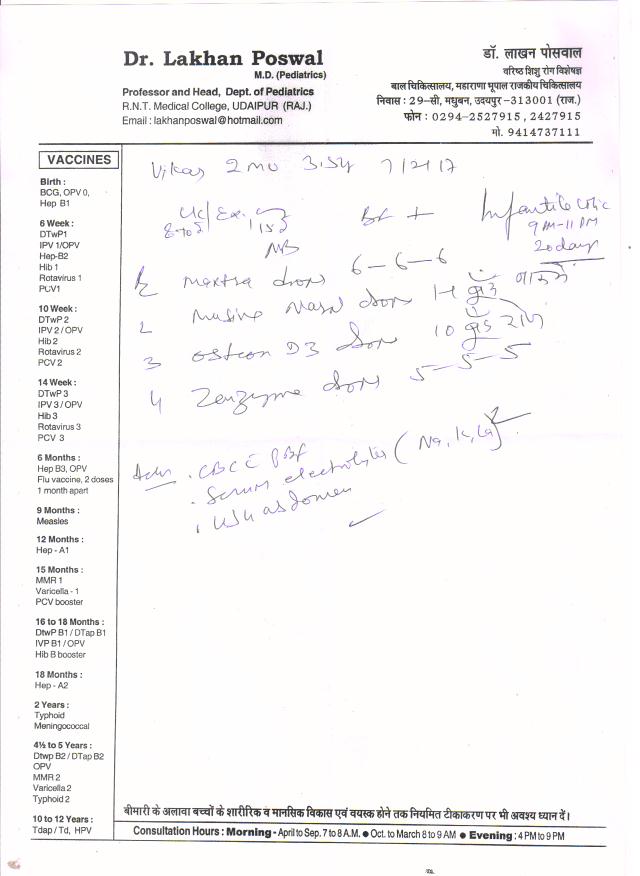 Dr. Lakhan Poswal
M.D. (Pediatrics)
Professor and Head, Dept. of Pediatrics
R.N.T. Medical College, UDAIPUR (RAJ.)
Email : lakhanposwal@hotmail.com
डॉ. लाखन पोसवाल
वरिष्ठ शिशु रोग विशेषज्ञ
बाल चिकित्सालय, महाराणा भूपाल राजकीय चिकित्सालय
निवास : 29-सी, मधुबन, उदयपुर -313001 (राज.)
फोन : 0294-2527915, 2427915
मो. 9414737111
VACCINES
Birth :
BCG, OPV 0,
Hep B1
6 Week :
DTwP1
IPV 1/OPV
Hep-B2
Hib 1
Rotavirus 1
PCV1
10 Week :
DTwP 2
IPV 2 / OPV
Hib 2
Rotavirus 2
PCV 2
14 Week :
DTwP 3
IPV 3 / OPV
Hib 3
Rotavirus 3
PCV 3
6 Months :
Hep B3, OPV
Flu vaccine, 2 doses
1 month apart
9 Months :
Measles
12 Months :
Hep - A1
15 Months :
MMR 1
Varicella - 1
PCV booster
16 to 18 Months :
DtwP B1 / DTap B1
IVP B1 / OPV
Hib B booster
18 Months :
Hep - A2
2 Years :
Typhoid
Meningococcal
4½ to 5 Years :
Dtwp B2 / DTap B2
OPV
MMR 2
Varicella 2
Typhoid 2
10 to 12 Years :
Tdap / Td, HPV
Vikas 2 mo 7/2/17
BF + Infantile colic
9 PM-11 PM
20 days
drops 6-6-6
2 Nasal drops 1-1 बूँद
3 D3 drops 10 बूँद रोज
4 Zenzyme drops 5-5-5
Adv . CBC
. Serum electrolytes (Na, K, Ca)
. USG abdomen
बीमारी के अलावा बच्चों के शारीरिक व मानसिक विकास एवं वयस्क होने तक नियमित टीकाकरण पर भी अवश्य ध्यान दें।
Consultation Hours : Morning - April to Sep. 7 to 8 A.M. ● Oct. to March 8 to 9 AM ● Evening : 4 PM to 9 PM